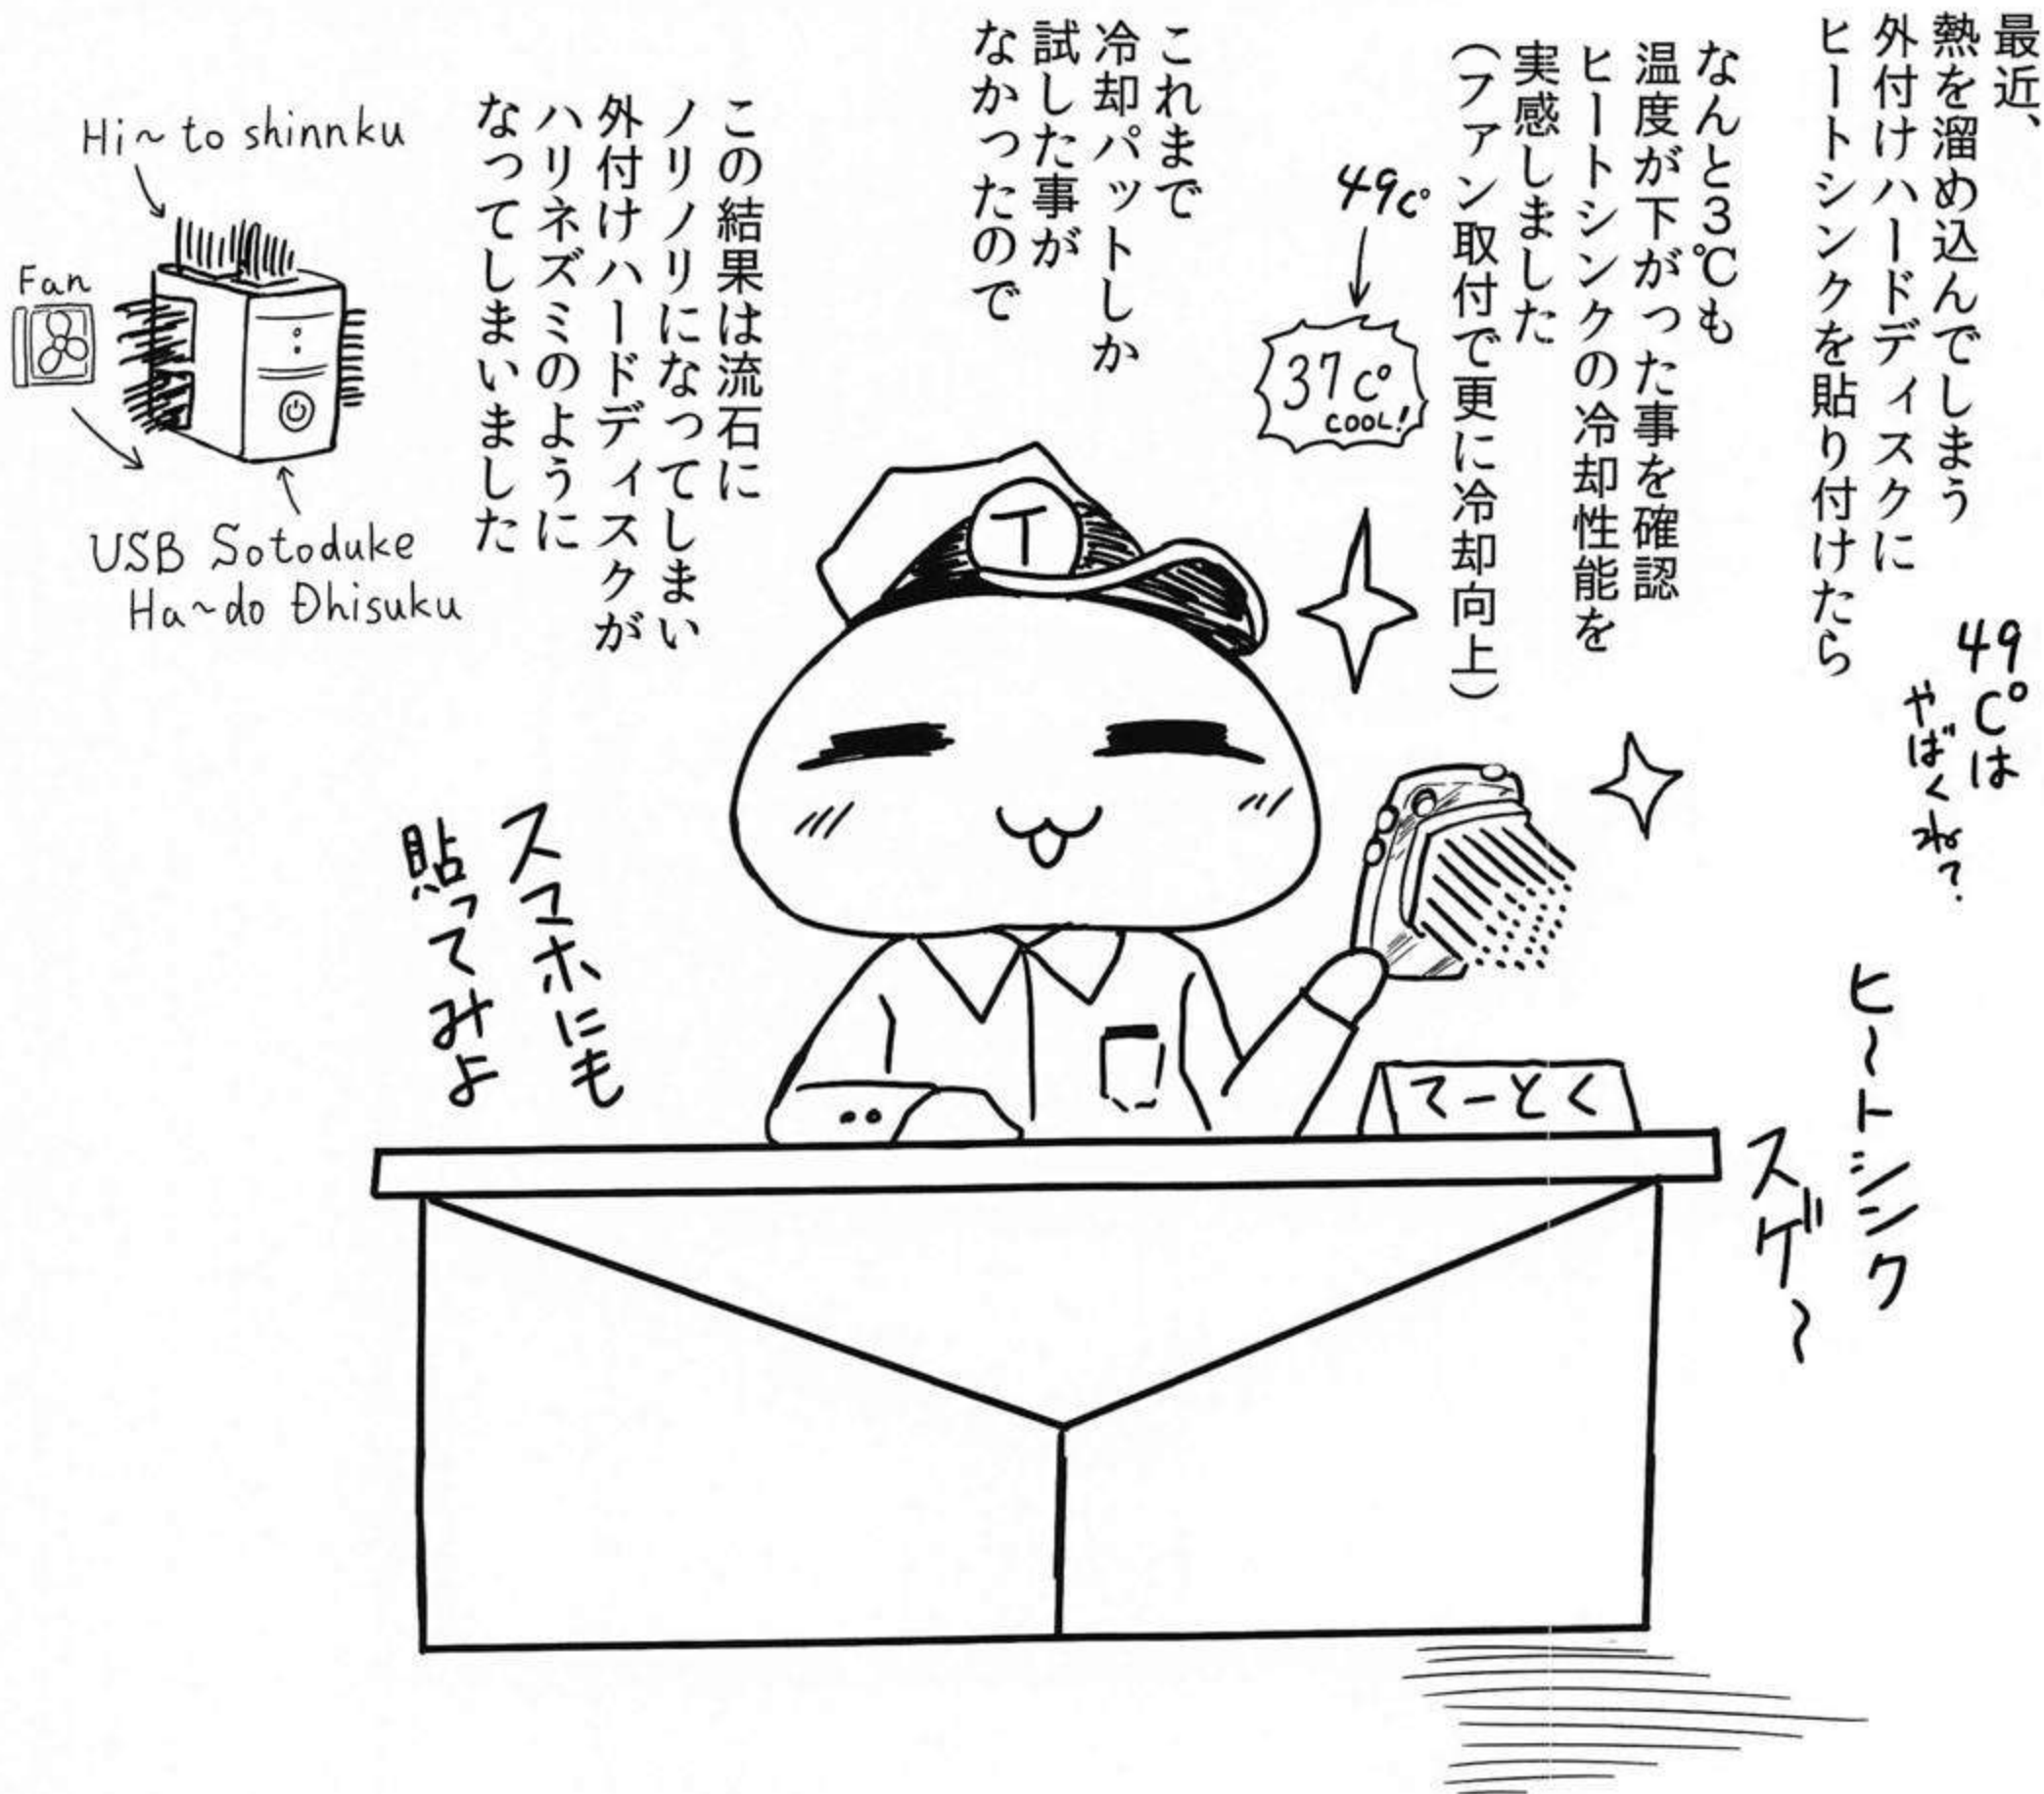 最近、
熱を溜め込んでしまう
外付けハードディスクに
ヒートシンクを貼り付けたら
なんと3℃も
温度が下がった事を確認
ヒートシンクの冷却性能を
実感しました
(ファン取付で更に冷却向上)
49C°
37C°
COOL!
これまで
冷却パットしか
試した事が
なかったので
この結果は流石に
ノリノリになってしまい
外付けハードディスクが
ハリネズミのように
なってしまいました
Hi~to shinnku
Fan
USB Sotoduke
Ha~do Đhisuku
49C°は
やばくね?
T
ヒ〜トシンク
スゲ〜
てーとく
スマホにも
貼ってみよ